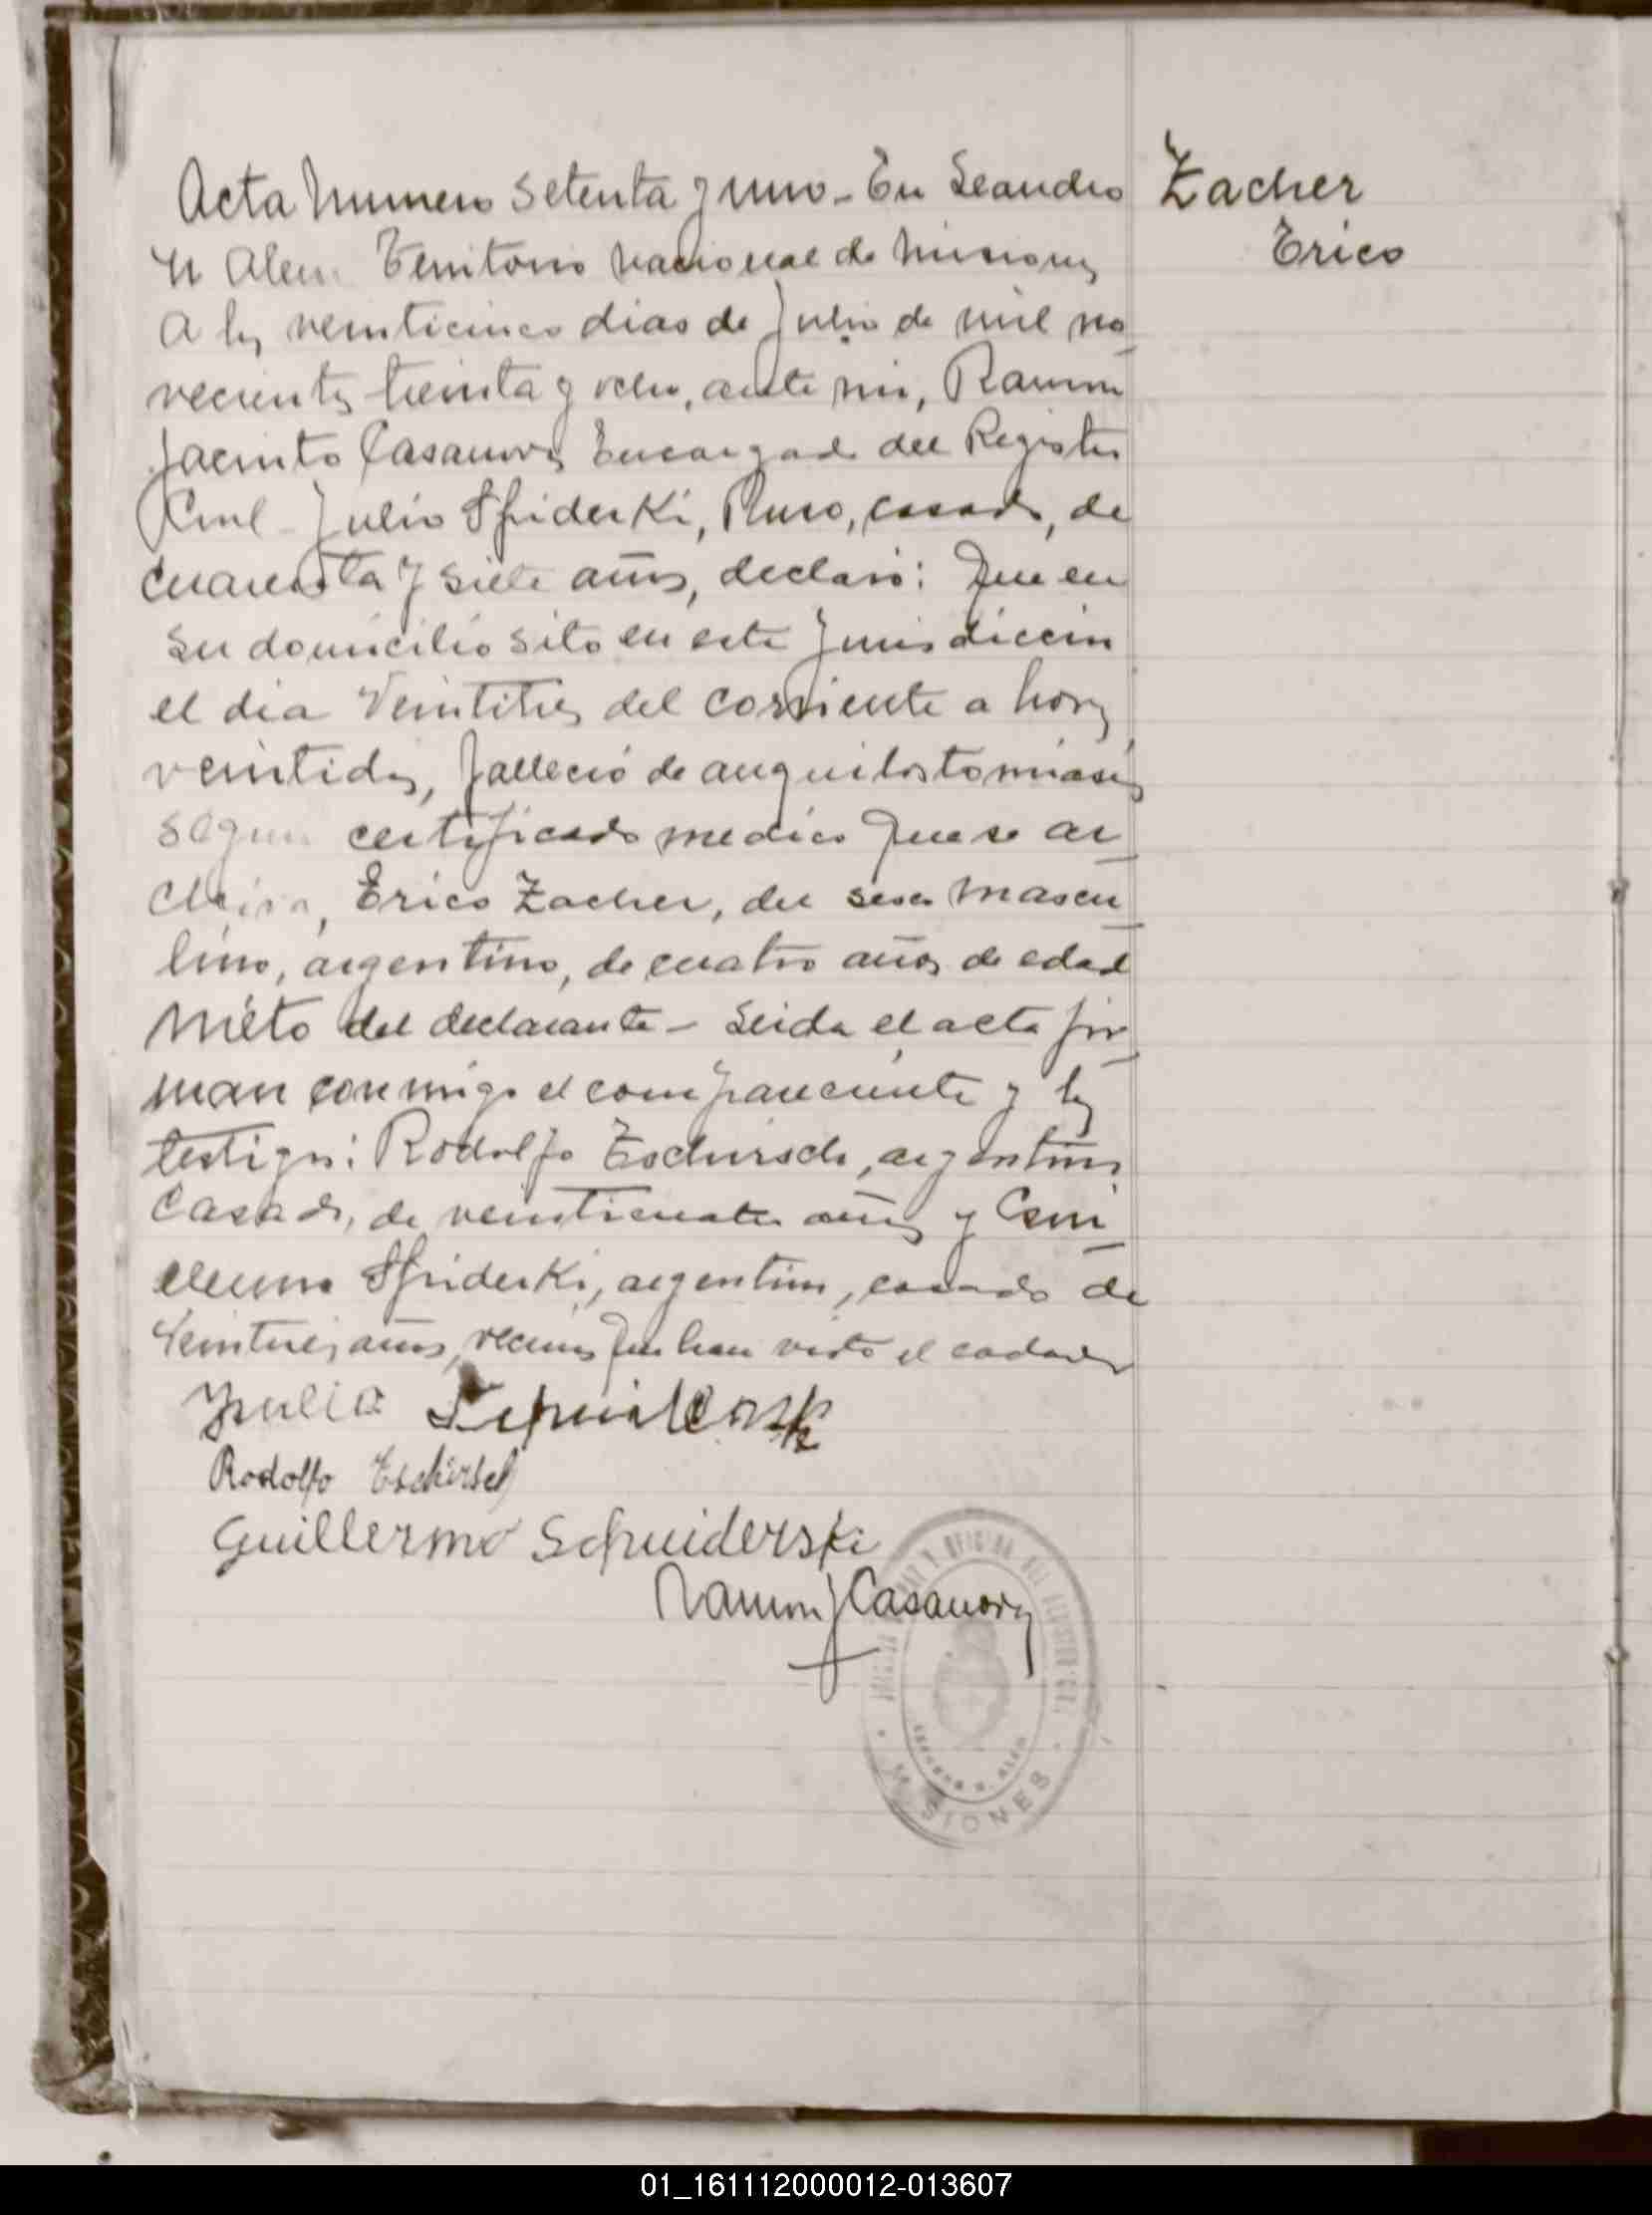 Acta Numero Setenta y uno - En Leandro
N Alem Territorio Nacional de Misiones
a los veinticinco dias de Julio de mil no
vecientos treinta y ocho, ante mi, Ramon
Jacinto Casanova Encargado del Registro
Civil - Julio Spiderki, Ruso, casado, de
cuarenta y siete años, declaró: Que en
su domicilio sito en esta Jurisdiccion
el dia Veintitres del corriente a horas
veintidos, falleció de anquilostomiasis
segun certificado medico que se ar
chiva, Erico Zacher, del sexo mascu
lino, argentino, de cuatro años de edad
nieto del declarante - Leida el acta fir
man conmigo el compareciente y los
testigos: Rodolfo Eschirsch, argentino
casado, de veinticuatro años y Gui
llermo Spiderki, argentino, casado de
Veintitres años, vecinos que han visto el cadaver
Julio
Rodolfo Eschirsch
Guillermo Schuiderski
Ramon J Casanova
Zacher
Erico
Y OFICINA DEL REGISTRO CIVIL
LEANDRO N. ALEM
MISIONES
01_161112000012-013607